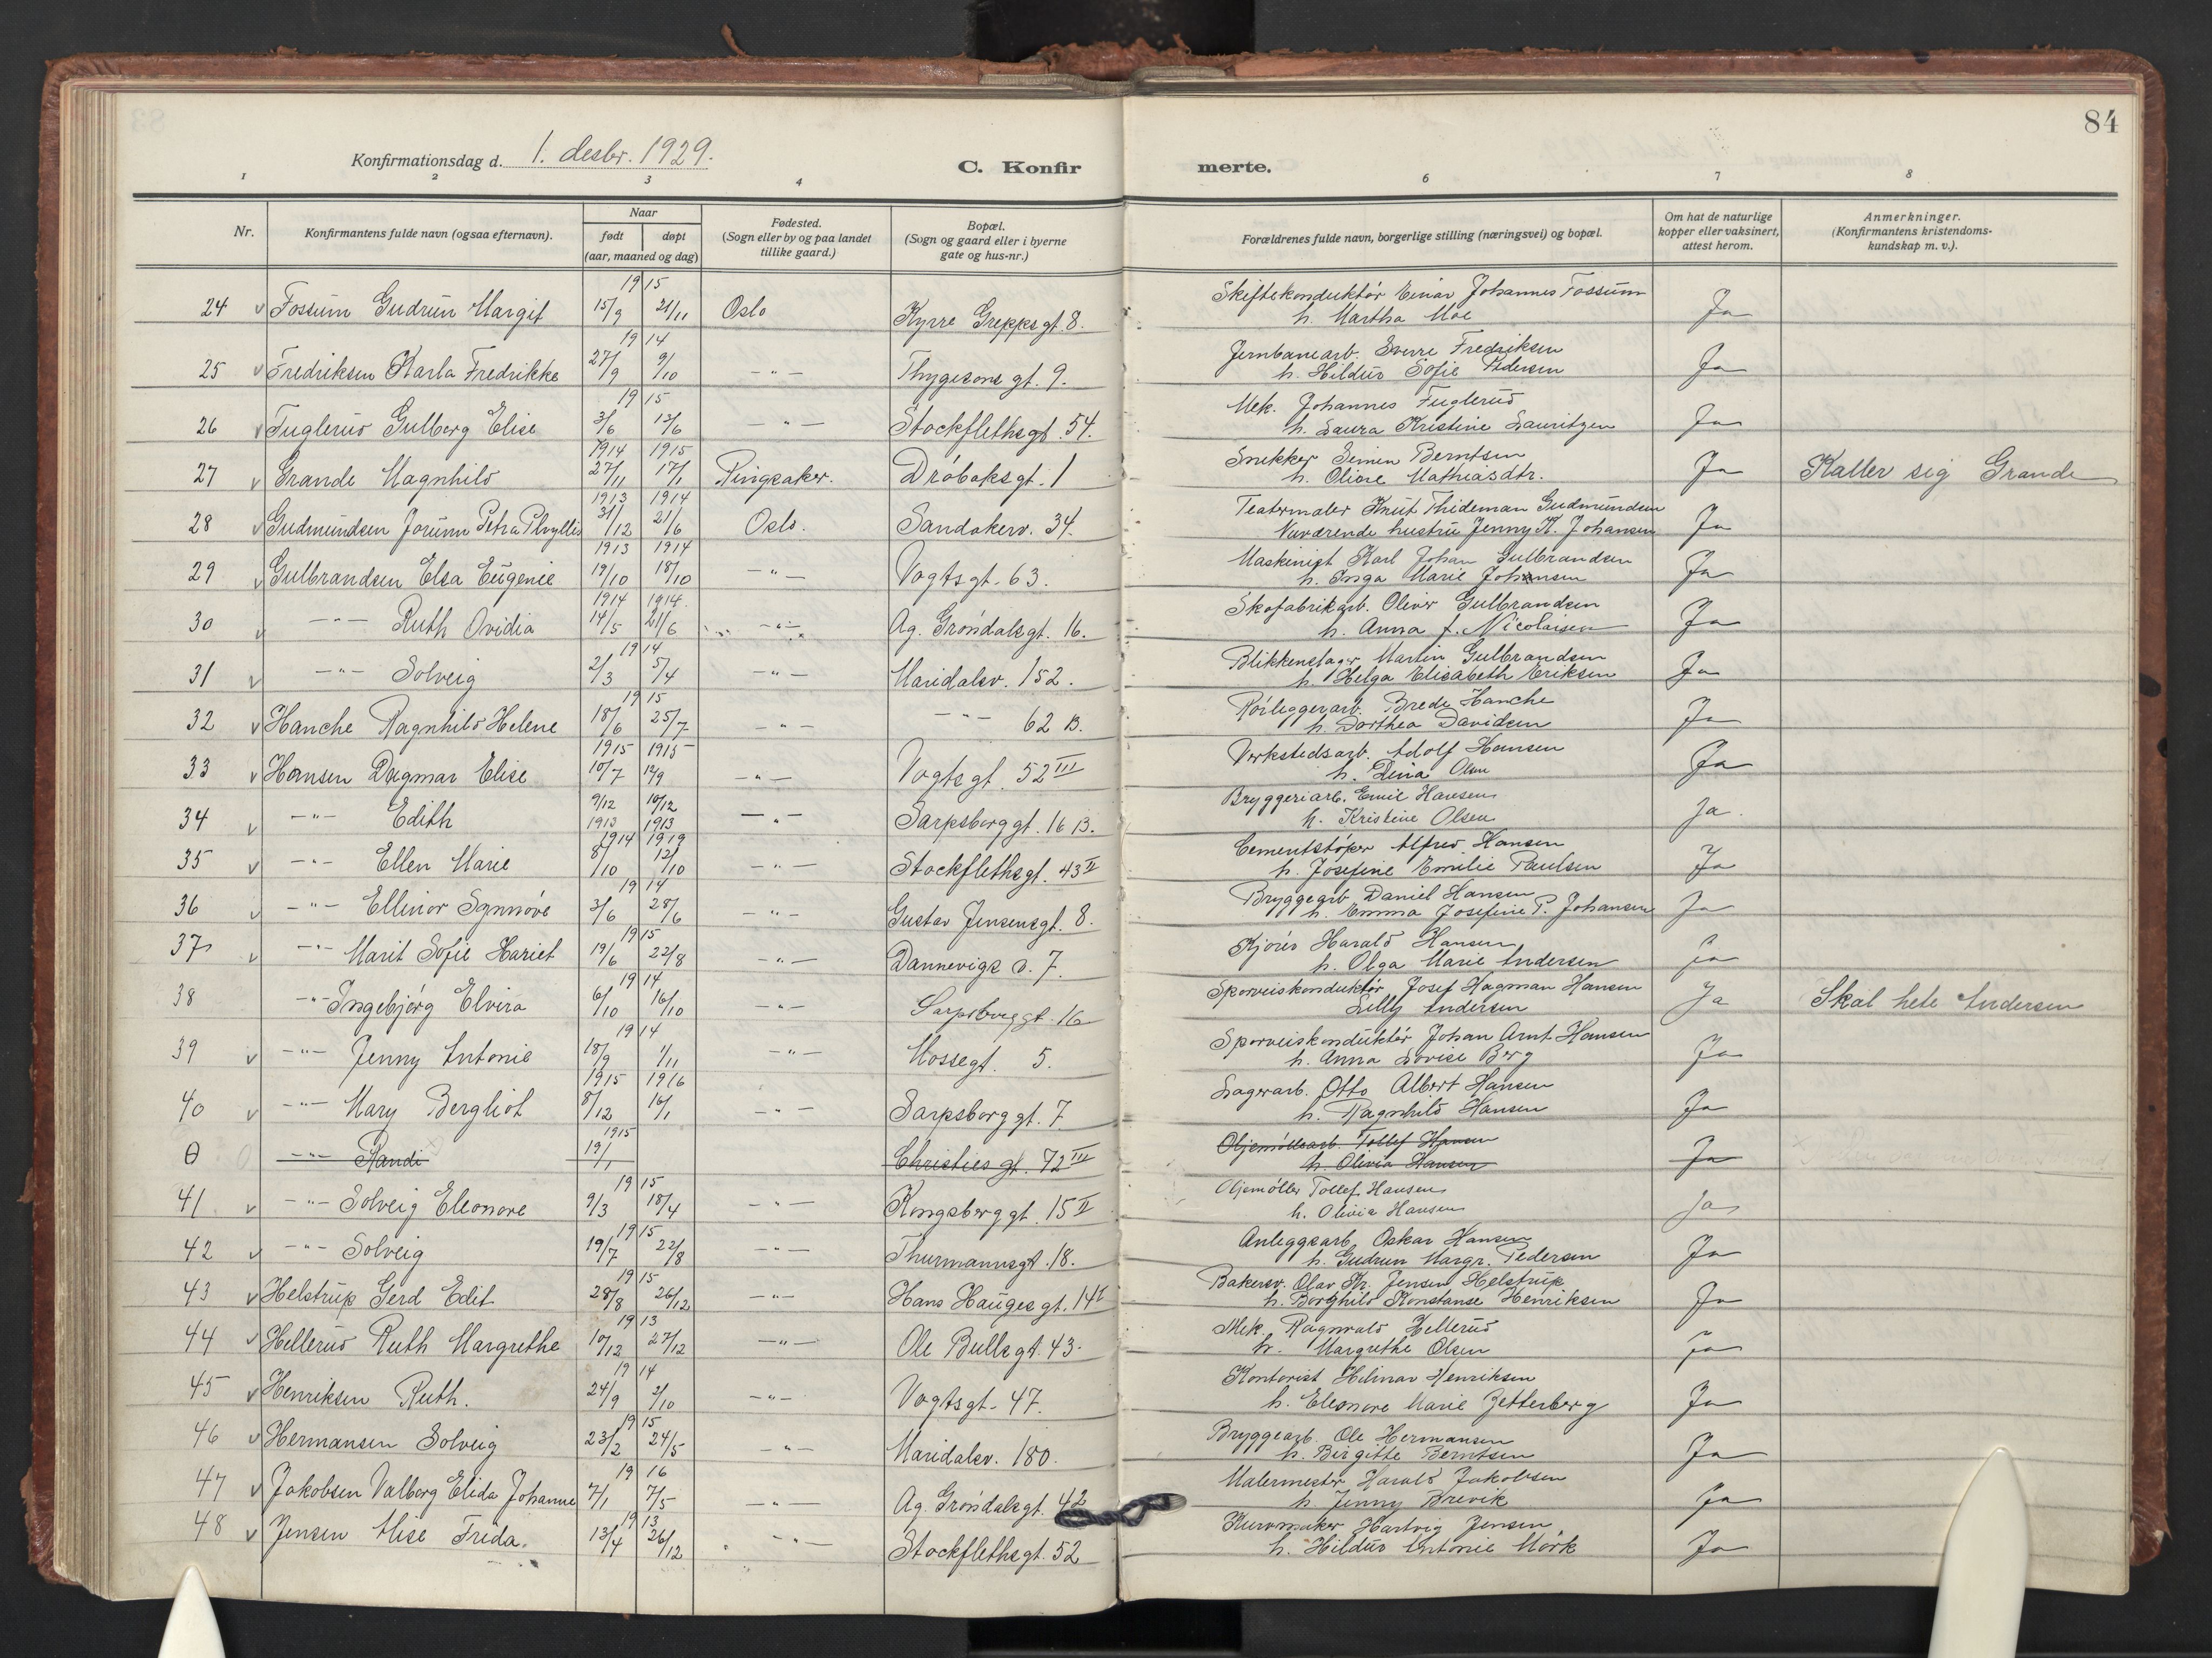 84
Konfirmationsdag d. 1. desbr. 1929.
C. Konfir merte.
1 2 3 4 6 7 8
Nr.
Konfirmantens fulde navn (ogsaa efternavn).
Naar
født døpt
(aar, maaned og dag)
Fødested.
(Sogn eller by og paa landet
tillike gaard.)
Bopæl.
(Sogn og gaard eller i byerne
gate og hus-nr.)
Forældrenes fulde navn, borgerlige stilling (næringsvei) og bopæl.
Om hat de naturlige
kopper eller vaksinert,
attest herom.
Anmerkninger.
(Konfirmantens kristendoms-
kundskap m. v.).
19 15 Skiftekonduktør Einar Johannes Fossum
24 v Fossum Gudrun Margit 15/9 21/11 Oslo Kyrre Greppsgt. 8. h. Martha Moe Ja
19 14 Jernbanearb. Sverre Fredriksen
25 v Fredriksen Karla Fredrikke 27/9 9/10 -"- Thygesons gt. 9. h. Hildur Sofie Pedersen Ja
19 15 Mek. Johannes Fuglerud
26 v Fuglerud Gulborg Elise 3/6 13/6 -"- Stockflethsgt. 54. h. Laura Kristine Lauritzen Ja
1914 1915 Snekker Simen Berntsen
27 v Grande Magnhild 27/11 17/1 Ringsaker. Drøbaksgt. 1 h. Oline Mathiasdtr. Ja Kaller sig Grande
1913 1914 Teatermaler Knut Thideman Gudmundsen
28 v Gudmundsen Jorunn Petra Phyllis 31/12 21/6 Oslo. Sandakerv. 34. Nuværende hustru Jenny K. Johansen Ja
1913 1914 Maskinist Karl Johan Gulbrandsen
29 v Gulbrandsen Elsa Eugenie 19/10 18/10 -"- Vogtsgt. 63. h. Inga Marie Johansen Ja
1914 1914. Skofabrikarb. Oliver Gulbrandsen
30 v -"- Ruth Ovidia 14/5 21/6 -"- Ag. Grøndalsgt. 16. h. Anna f. Nicolaisen Ja
19 14 Blikkenslager Martin Gulbrandsen
31 v -"- Solveig 2/3 5/4 -"- Maridalsv. 152. h. Helga Elisabeth Eriksen Ja
19 15 Rørleggerarb. Brede Hanche
32 v Hanche Ragnhild Helene 18/6 25/7 -"- -"- 62 B. h. Dorthea Davidsen Ja
1915 1915 Verkstedsarb. Adolf Hansen
33 v Hansen Dagmar Elise 10/7 12/9 -"- Vogtsgt. 52 III h. Lina Olsen Ja
9/12 10/12 Bryggeriarb. Emil Hansen
34 v -"- Edith 1913 1913 -"- Sarpsborggt. 16 B. h. Kristine Olsen Ja.
1914 1919 Cementstøper Alfred Hansen
35 v -"- Ellen Marie 8/10 12/10 -"- Stockflethsgt. 43 II h. Josefine Emilie Paulsen Ja
19 14 Bryggearb. Daniel Hansen
36 v -"- Ellinor Synnøve 3/6 28/6 -"- Gustav Jensensgt. 8. h. Emma Josefine P. Johansen Ja
19 15 Kjører Harald Hansen
37 v -"- Marit Sofie Hariet 19/6 22/8 -"- Dannevigs v. 7. h. Olga Marie Andersen Ja
19 14 Sporveiskonduktør Josef Hagman Hansen
38 -"- Ingebjørg Elvira 6/10 16/10 -"- Sarpsborggt. 16 Lilly Andersen Ja Skal hete Andersen
19 14 Sporveiskonduktør Johan Arnt Hansen
39 v -"- Jenny Antonie 18/9 1/11 -"- Mossegt. 5. h. Anna Lovise Berg Ja
1915 1916 Lagerarb. Otto Albert Hansen
40 v -"- Mary Bergliot 8/12 16/1 -"- Sarpsborggt. 7 h. Ragnhild Hansen Ja
1915 Oljemøllearb. Tollef Hansen
0 -"- Randi 19/1 Christies gt. 72 III h. Olivia Hansen Ja
19 15 Oljemøller Tollef Hansen
41 v -"- Solveig Eleonore 9/3 18/4 -"- Kongsberggt. 15 II h. Olivia Hansen Ja
19 15 Anleggsarb. Oskar Hansen
42 v -"- Solveig 19/7 22/8 -"- Thurmannsgt. 18. h. Gudrun Margr. Pedersen Ja
19 15 Bakersv. Olav Kr. Jensen Helstrup
43 v Helstrup Gerd Edit 28/8 26/12 -"- Hans Hauges gt. 14 I h. Borghild Konstanse Henriksen Ja
19 13 Mek. Ragnvald Hellerud
44 v Hellerud Ruth Margrethe 10/12 27/12 -"- Ole Bullsgt. 43. h. Margrethe Olsen Ja
19 14 Kontorist Hilmar Henriksen
45 v Henriksen Ruth. 24/9 2/10 -"- Vogtsgt. 47. h. Eleonore Marie Zetterberg Ja
19 15 Bryggearb. Ole Hermansen
46 v Hermansen Solveig 23/2 24/5 -"- Maridalsv. 180. h. Birgitte Berntsen Ja
19 16 Malermester Harald Jakobsen
47 v Jakobsen Valborg Elida Johanne 7/1 7/5 -"- Ag. Grøndalsgt. 42 h. Jenny Brevik Ja
19 13 Kurvmaker Hartvig Jensen
48 v Jensen Alise Frida. 13/4 26/12 -"- Stockflethsgt. 52 h. Hildur Antonie Mørk Ja